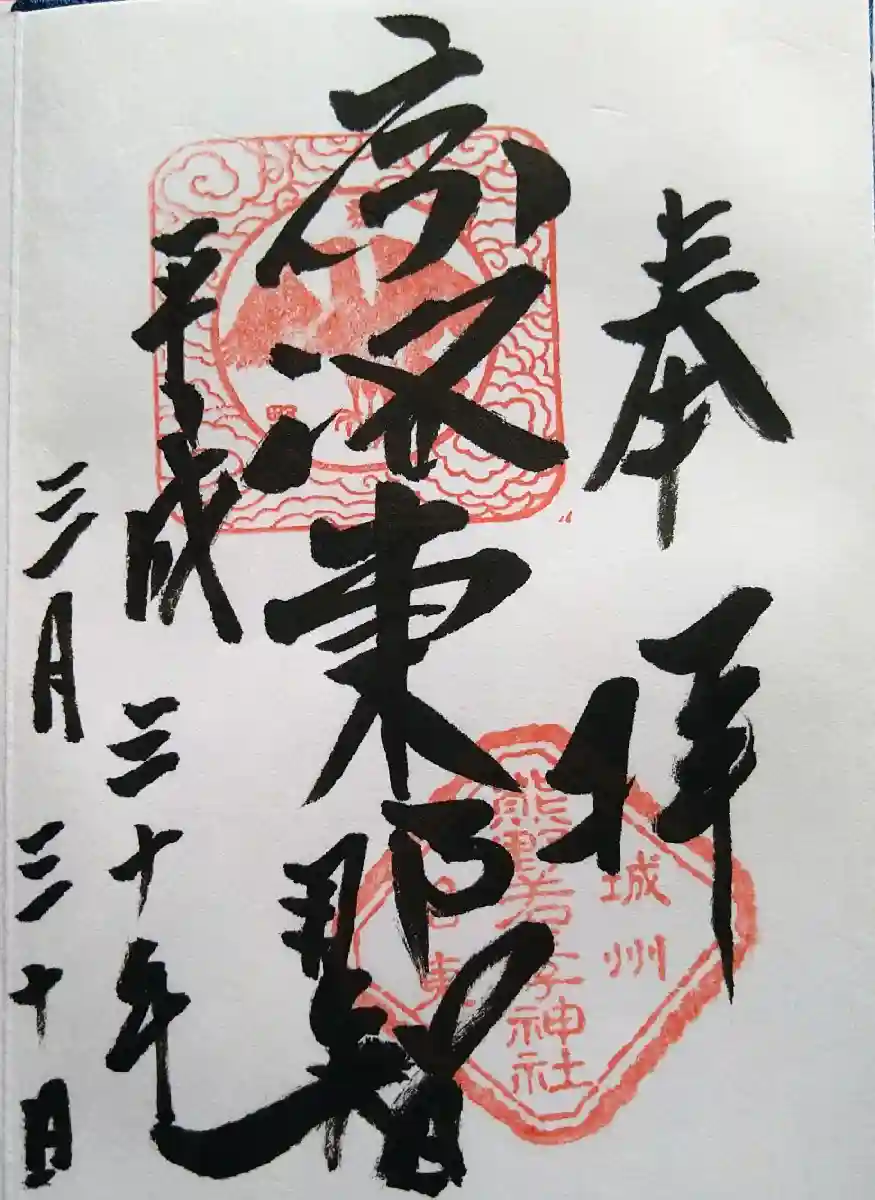 奉拝
京洛東那智
平成三十年
三月三十日
城州
熊野若王子神社
洛東